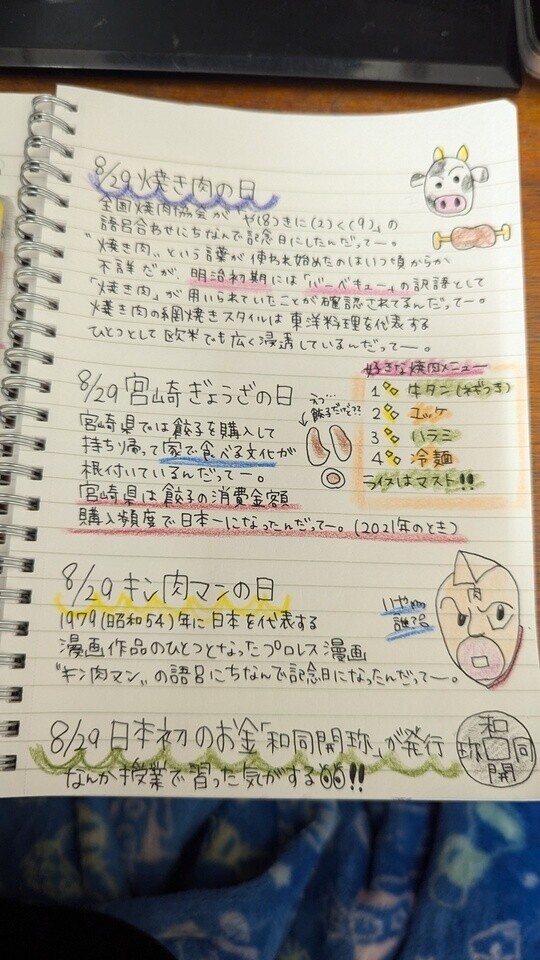 8/29 焼き肉の日
全国焼肉協会が "や(8)きに(2)く(9)" の
語呂合わせにちなんで記念日にしたんだってー。
"焼き肉" という言葉が使われ始めたのはいつ頃からか
不詳だが、明治初期には「バーベキュー」の訳語として
「焼き肉」が用いられていたことが確認されてるんだってー。
焼き肉の網焼きスタイルは東洋料理を代表する
ひとつとして欧米でも広く浸透しているんだってー。
好きな焼肉メニュー
1 牛タン(ねぎつき)
2 ユッケ
3 ハラミ
4 冷麺
ライスはマスト!!
8/29 宮崎ぎょうざの日
えっ…
餃子だだ??
宮崎県では餃子を購入して
持ち帰って家で食べる文化が
根付いているんだってー。
宮崎県は餃子の消費金額
購入頻度で日本一になったんだってー。(2021年のとき)
8/29 キン肉マンの日
1979(昭和54)年に日本を代表する
漫画作品のひとつとなったプロレス漫画
"キン肉マン" の語呂にちなんで記念日になったんだってー。
いやm
誰?
肉
8/29 日本初のお金「和同開珎」が発行
なんか授業で習った気がする!!
和
珎 同
開